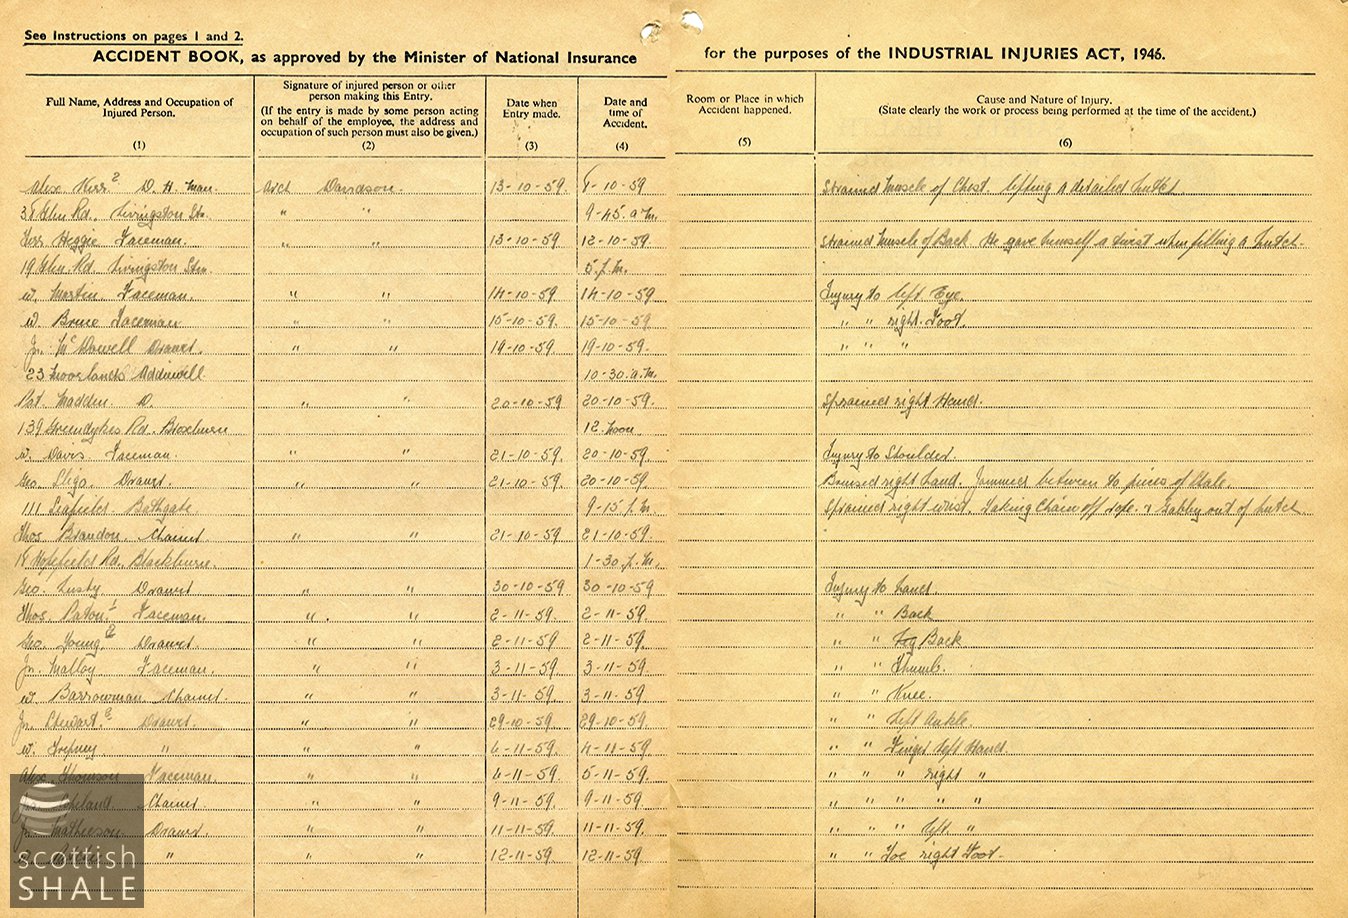 See Instructions on pages 1 and 2.
ACCIDENT BOOK, as approved by the Minister of National Insurance for the purposes of the INDUSTRIAL INJURIES ACT, 1946.
Full Name, Address and Occupation of Injured Person. (1)
Signature of injured person or other person making this Entry. (If the entry is made by some person acting on behalf of the employee, the address and occupation of such person must also be given.) (2)
Date when Entry made. (3)
Date and time of Accident. (4)
Room or Place in which Accident happened. (5)
Cause and Nature of Injury. (State clearly the work or process being performed at the time of the accident.) (6)
Alex. Kerr 2 D. H. Man. Arch Davidson. 13-10-59. -10-59 Strained Muscle of Chest. lifting a derailed hutch
Glen Rd. Livingston Stn. " " 9-45. a.m.
Thos. Heggie Faceman. " " 13-10-59 12-10-59. Strained Muscle of Back He gave himself a twist when filling a hutch.
19 Glen Rd. Livingston Stn. 5. p.m.
W. Martin Faceman. " " 14-10-59. 14-10-59 Injury to left Eye.
W. Bruce Faceman " " 15-10-59. 15-10-59. " " right Foot.
Jn. McDowell Drawer. " " 19-10-59. 19-10-59. " " "
23 Moorlands Addiewell 10-30. a.m.
Pat. Madden D. " " 20-10-59 20-10-59. Sprained right Hand.
139 Greendykes Rd. Broxburn 12 Noon
W. Davis Faceman. " " 21-10-59. 20-10-59. Injury to Shoulder.
Geo. Sligo. Drawer. " " 21-10-59. 20-10-59 Bruised right hand. Jammed between to pieces of Shale.
111 Seafield. Bathgate. 9-15 p.m. Sprained right wrist. Taking Chain off rope. & out of hutch
Thos. Brandon. Chainer " " 21-10-59 21-10-59.
Hopefield Rd. Blackburn. 1-30. p.m.
Geo. Lusby Drawer " " 30-10-59 30-10-59. Injury to hand.
Thos. Paton. 1 Faceman. " " 2-11-59. 2-11-59. " " Back
Geo. Young. 2 Drawer. " " 2-11-59. 2-11-59. " " Back.
Jn. Malloy Faceman. " " 3-11-59. 3-11-59. " " Thumb.
W. Barrowman Chainer. " " 3-11-59. 3-11-59. " " Knee.
Jn. Stewart. 2 Drawer. " " 29-10-59 29-10-59. " " left Ankle.
W. " " " 4-11-59. 4-11-59. " " Finger left Hand.
Alex. Thomson Faceman. " " 4-11-59. 5-11-59. " " " right "
Chainer. " " 9-11-59. 9-11-59. " " " " "
Jn. Mathieson. Drawer. " " 11-11-59. 11-11-59. " " " left "
" " " 12-11-59. 12-11-59. " " Toe right Foot.
scottish
SHALE